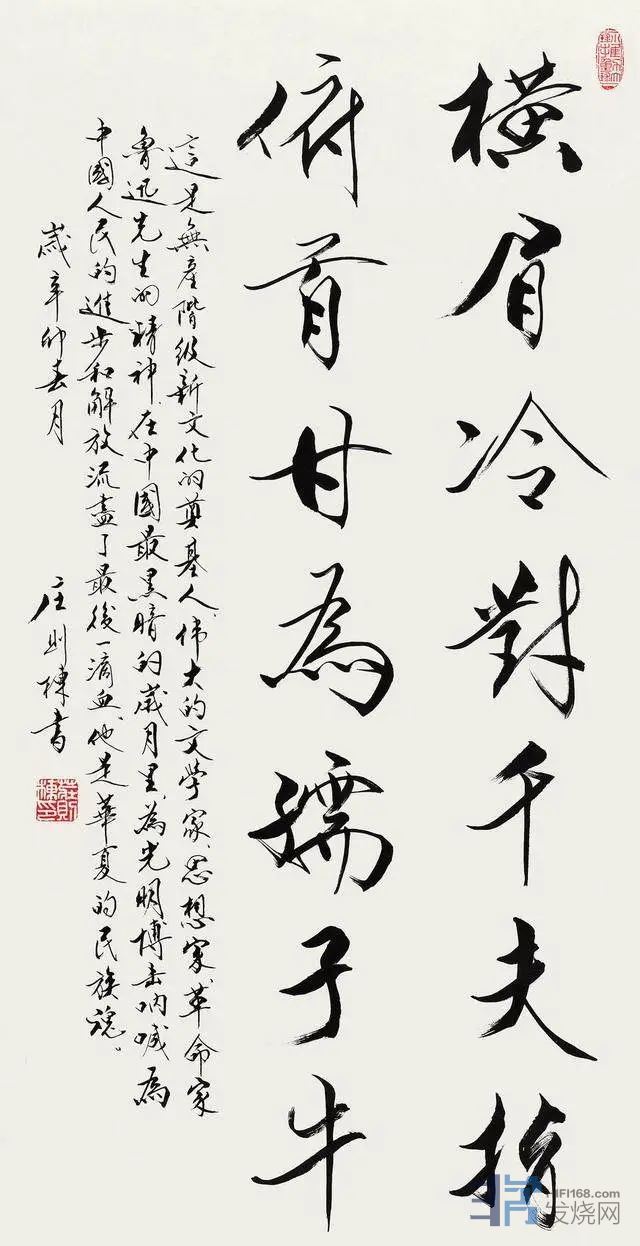 橫眉冷對千夫指
俯首甘為孺子牛
這是無產階級新文化的奠基人、偉大的文學家、思想家、革命家
魯迅先生的精神、在中國最黑暗的歲月里、為光明博击吶喊為
中國人民的進步和解放流盡了最後一滴血、他是華夏的民族魂。
歲辛卯春月
庄则棟書
莊則棟印
HIFI168.com
发烧网